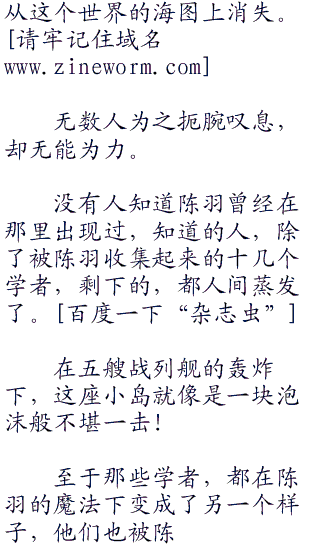 从这个世界的海图上消失。
[请牢记住域名
www.zineworm.com]
无数人为之扼腕叹息，
却无能为力。
没有人知道陈羽曾经在
那里出现过，知道的人，除
了被陈羽收集起来的十几个
学者，剩下的，都人间蒸发
了。[百度一下“杂志虫”]
在五艘战列舰的轰炸
下，这座小岛就像是一块泡
沫般不堪一击！
至于那些学者，都在陈
羽的魔法下变成了另一个样
子，他们也被陈